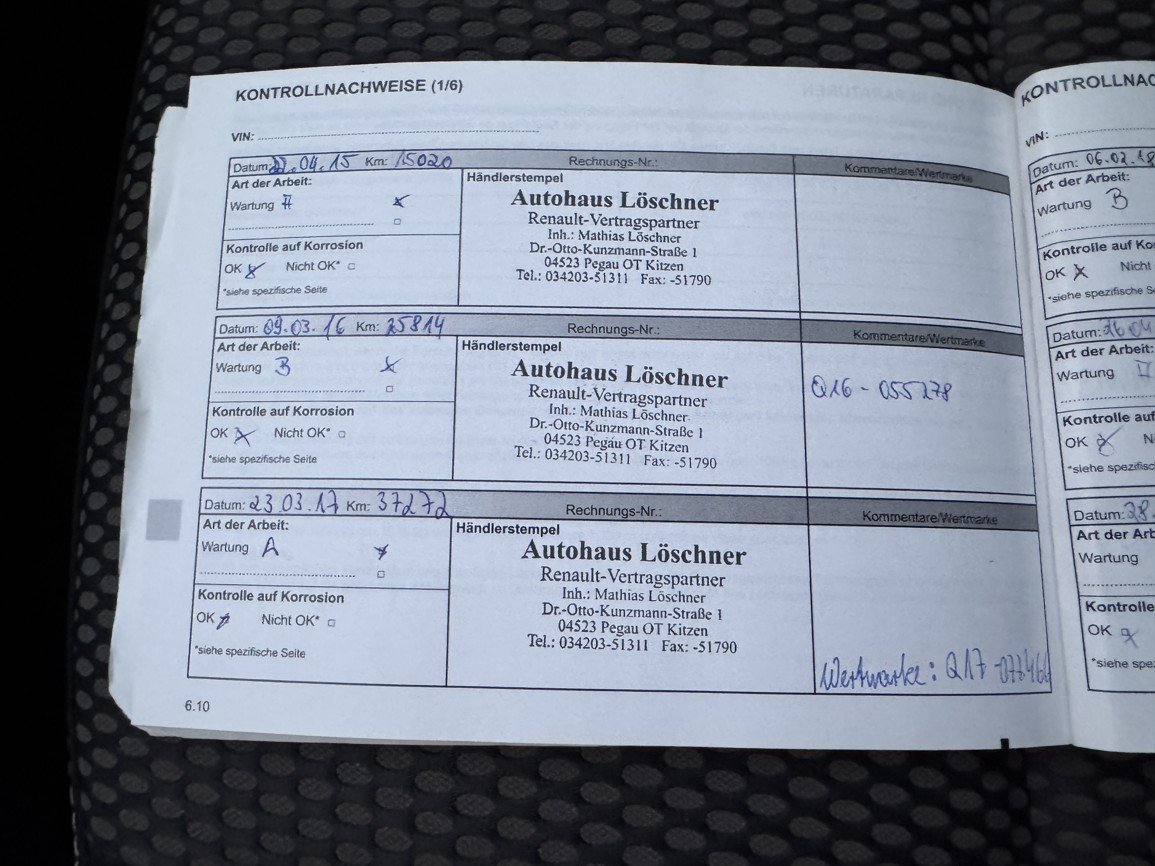 KONTROLLNACHWEISE (1/6)
VIN:
Datum: .04.15 Km: 15020 Rechnungs-Nr.: Kommentare/Wertmarke
Art der Arbeit: Händlerstempel
Wartung A
Autohaus Löschner
Renault-Vertragspartner
Inh.: Mathias Löschner
Dr.-Otto-Kunzmann-Straße 1
04523 Pegau OT Kitzen
Tel.: 034203-51311 Fax: -51790
Kontrolle auf Korrosion
OK Nicht OK*
*siehe spezifische Seite
Datum: 09.03.16 Km: 25814 Rechnungs-Nr.: Kommentare/Wertmarke
Art der Arbeit: Händlerstempel
Wartung B
Autohaus Löschner
Renault-Vertragspartner
Inh.: Mathias Löschner
Dr.-Otto-Kunzmann-Straße 1
04523 Pegau OT Kitzen
Tel.: 034203-51311 Fax: -51790
Q16-055278
Kontrolle auf Korrosion
OK Nicht OK*
*siehe spezifische Seite
Datum: 23.03.17 Km: 37272 Rechnungs-Nr.: Kommentare/Wertmarke
Art der Arbeit: Händlerstempel
Wartung A
Autohaus Löschner
Renault-Vertragspartner
Inh.: Mathias Löschner
Dr.-Otto-Kunzmann-Straße 1
04523 Pegau OT Kitzen
Tel.: 034203-51311 Fax: -51790
Kontrolle auf Korrosion
OK Nicht OK*
*siehe spezifische Seite
Wertmarke: Q17
6.10
KONTROLLNAC
VIN:
Datum: 06.02.18
Art der Arbeit:
Wartung B
Kontrolle auf Ko
OK Nicht
*siehe spezifische S
Datum: 26.04
Art der Arbeit:
Wartung
Kontrolle auf
OK N
*siehe spezifisc
Datum: 28.
Art der Arb
Wartung
Kontrolle
OK
*siehe spe